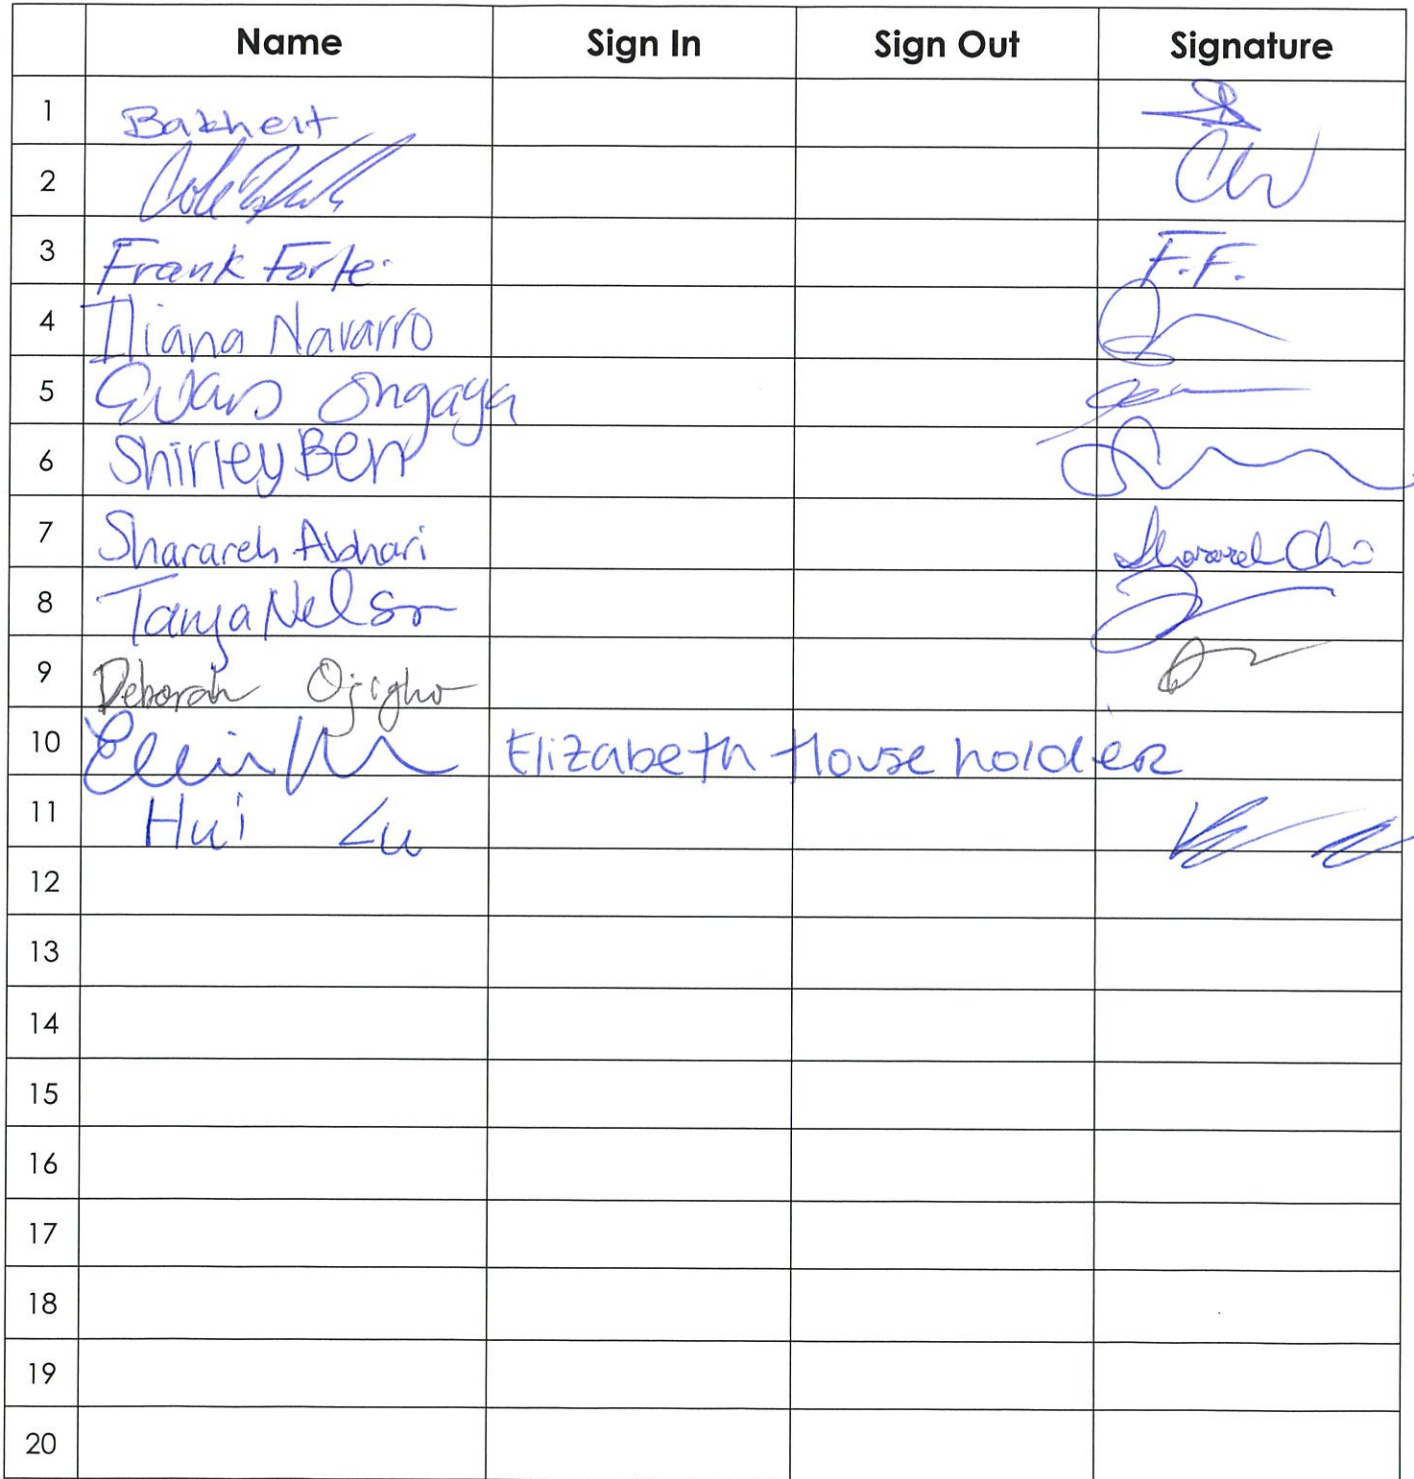 Name Sign In Sign Out Signature
1 Bakheit
2
3 Frank Forte. F.F.
4 Iliana Navarro
5 Evans Ongaya
6 Shirley Berr
7 Sharareh Abhari
8 Tanya Nelson
9 Deborah Ojigho
10 Elizabeth Householder
11 Hui Lu
12
13
14
15
16
17
18
19
20